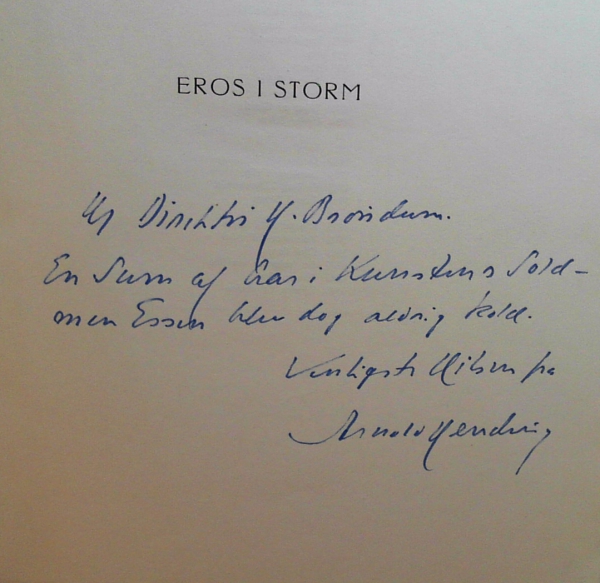 EROS I STORM
Hr Direktør H. Brøndum.
En Sum af Aar i Kunstens Sold –
men Essen blev dog aldrig kold.
Venligst Hilsen fra
Arnold Hending